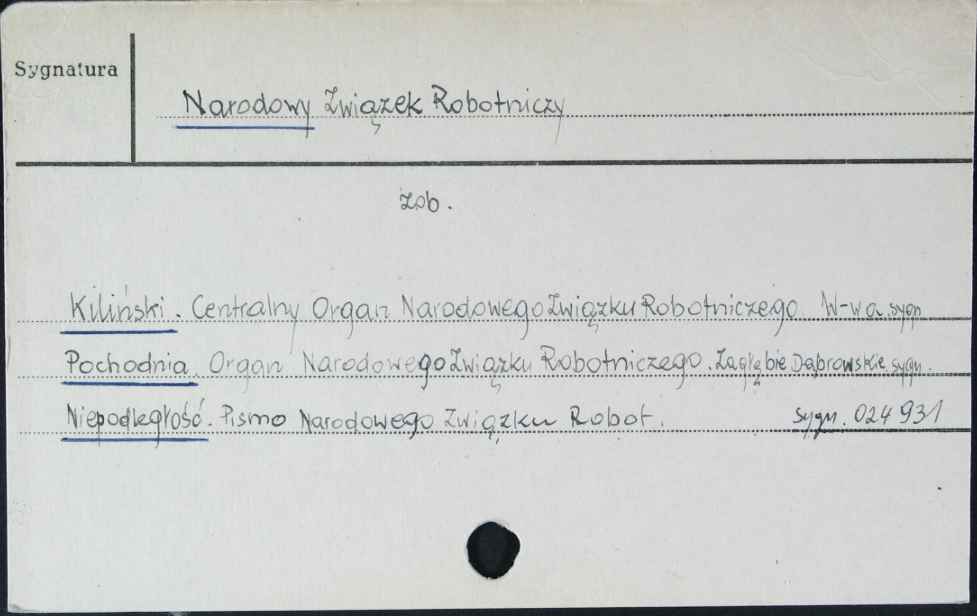 Sygnatura
Narodowy Związek Robotniczy
zob.
Kiliński. Centralny Organ Narodowego Związku Robotniczego W-wa. sygn
Pochodnia. Organ Narodowego Związku Robotniczego. Zagłębie Dąbrowskie sygn.
Niepodległość. Pismo Narodowego Związku Robot. sygn. 024931